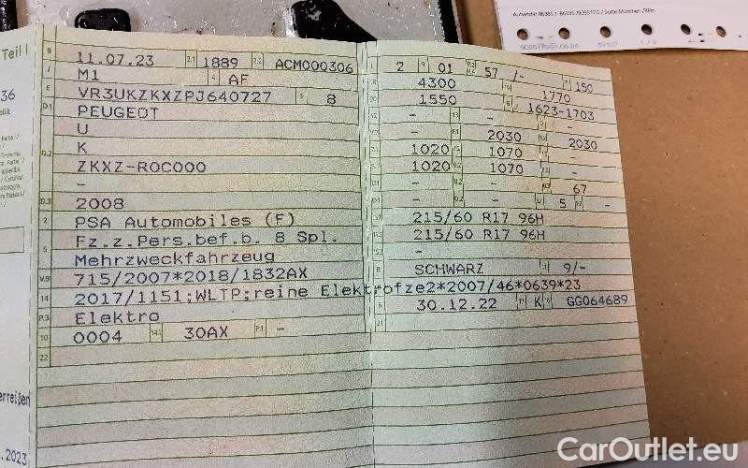 Teil I
B 11.07.23 2.1 1889 2.2 ACM000306
J M1 4 AF
E VR3UKZKXZPJ640727 3 8
D.1 PEUGEOT
D.2 U
K
ZKXZ-R0C000
-
D.3 2008
2 PSA Automobiles (F)
5 Fz.z.Pers.bef.b. 8 Spl.
Mehrzweckfahrzeug
V.9 715/2007*2018/1832AX
14 2017/1151;WLTP;reine Elektrofze2*2007/46*0639*23
P.3 Elektro
10 0004 14.1 30AX P.1 -
22
2 9 01 57 /- 150
4300 1770
1550 1623-1703
- - -
- 2030 2030
1020 1070 -
1020 1070 -
- - 67
- - 5 -
215/60 R17 96H
215/60 R17 96H
-
R SCHWARZ 9/-
-
30.12.22 K GG064689
21
36
erreißen
.2023
CarOutlet.eu